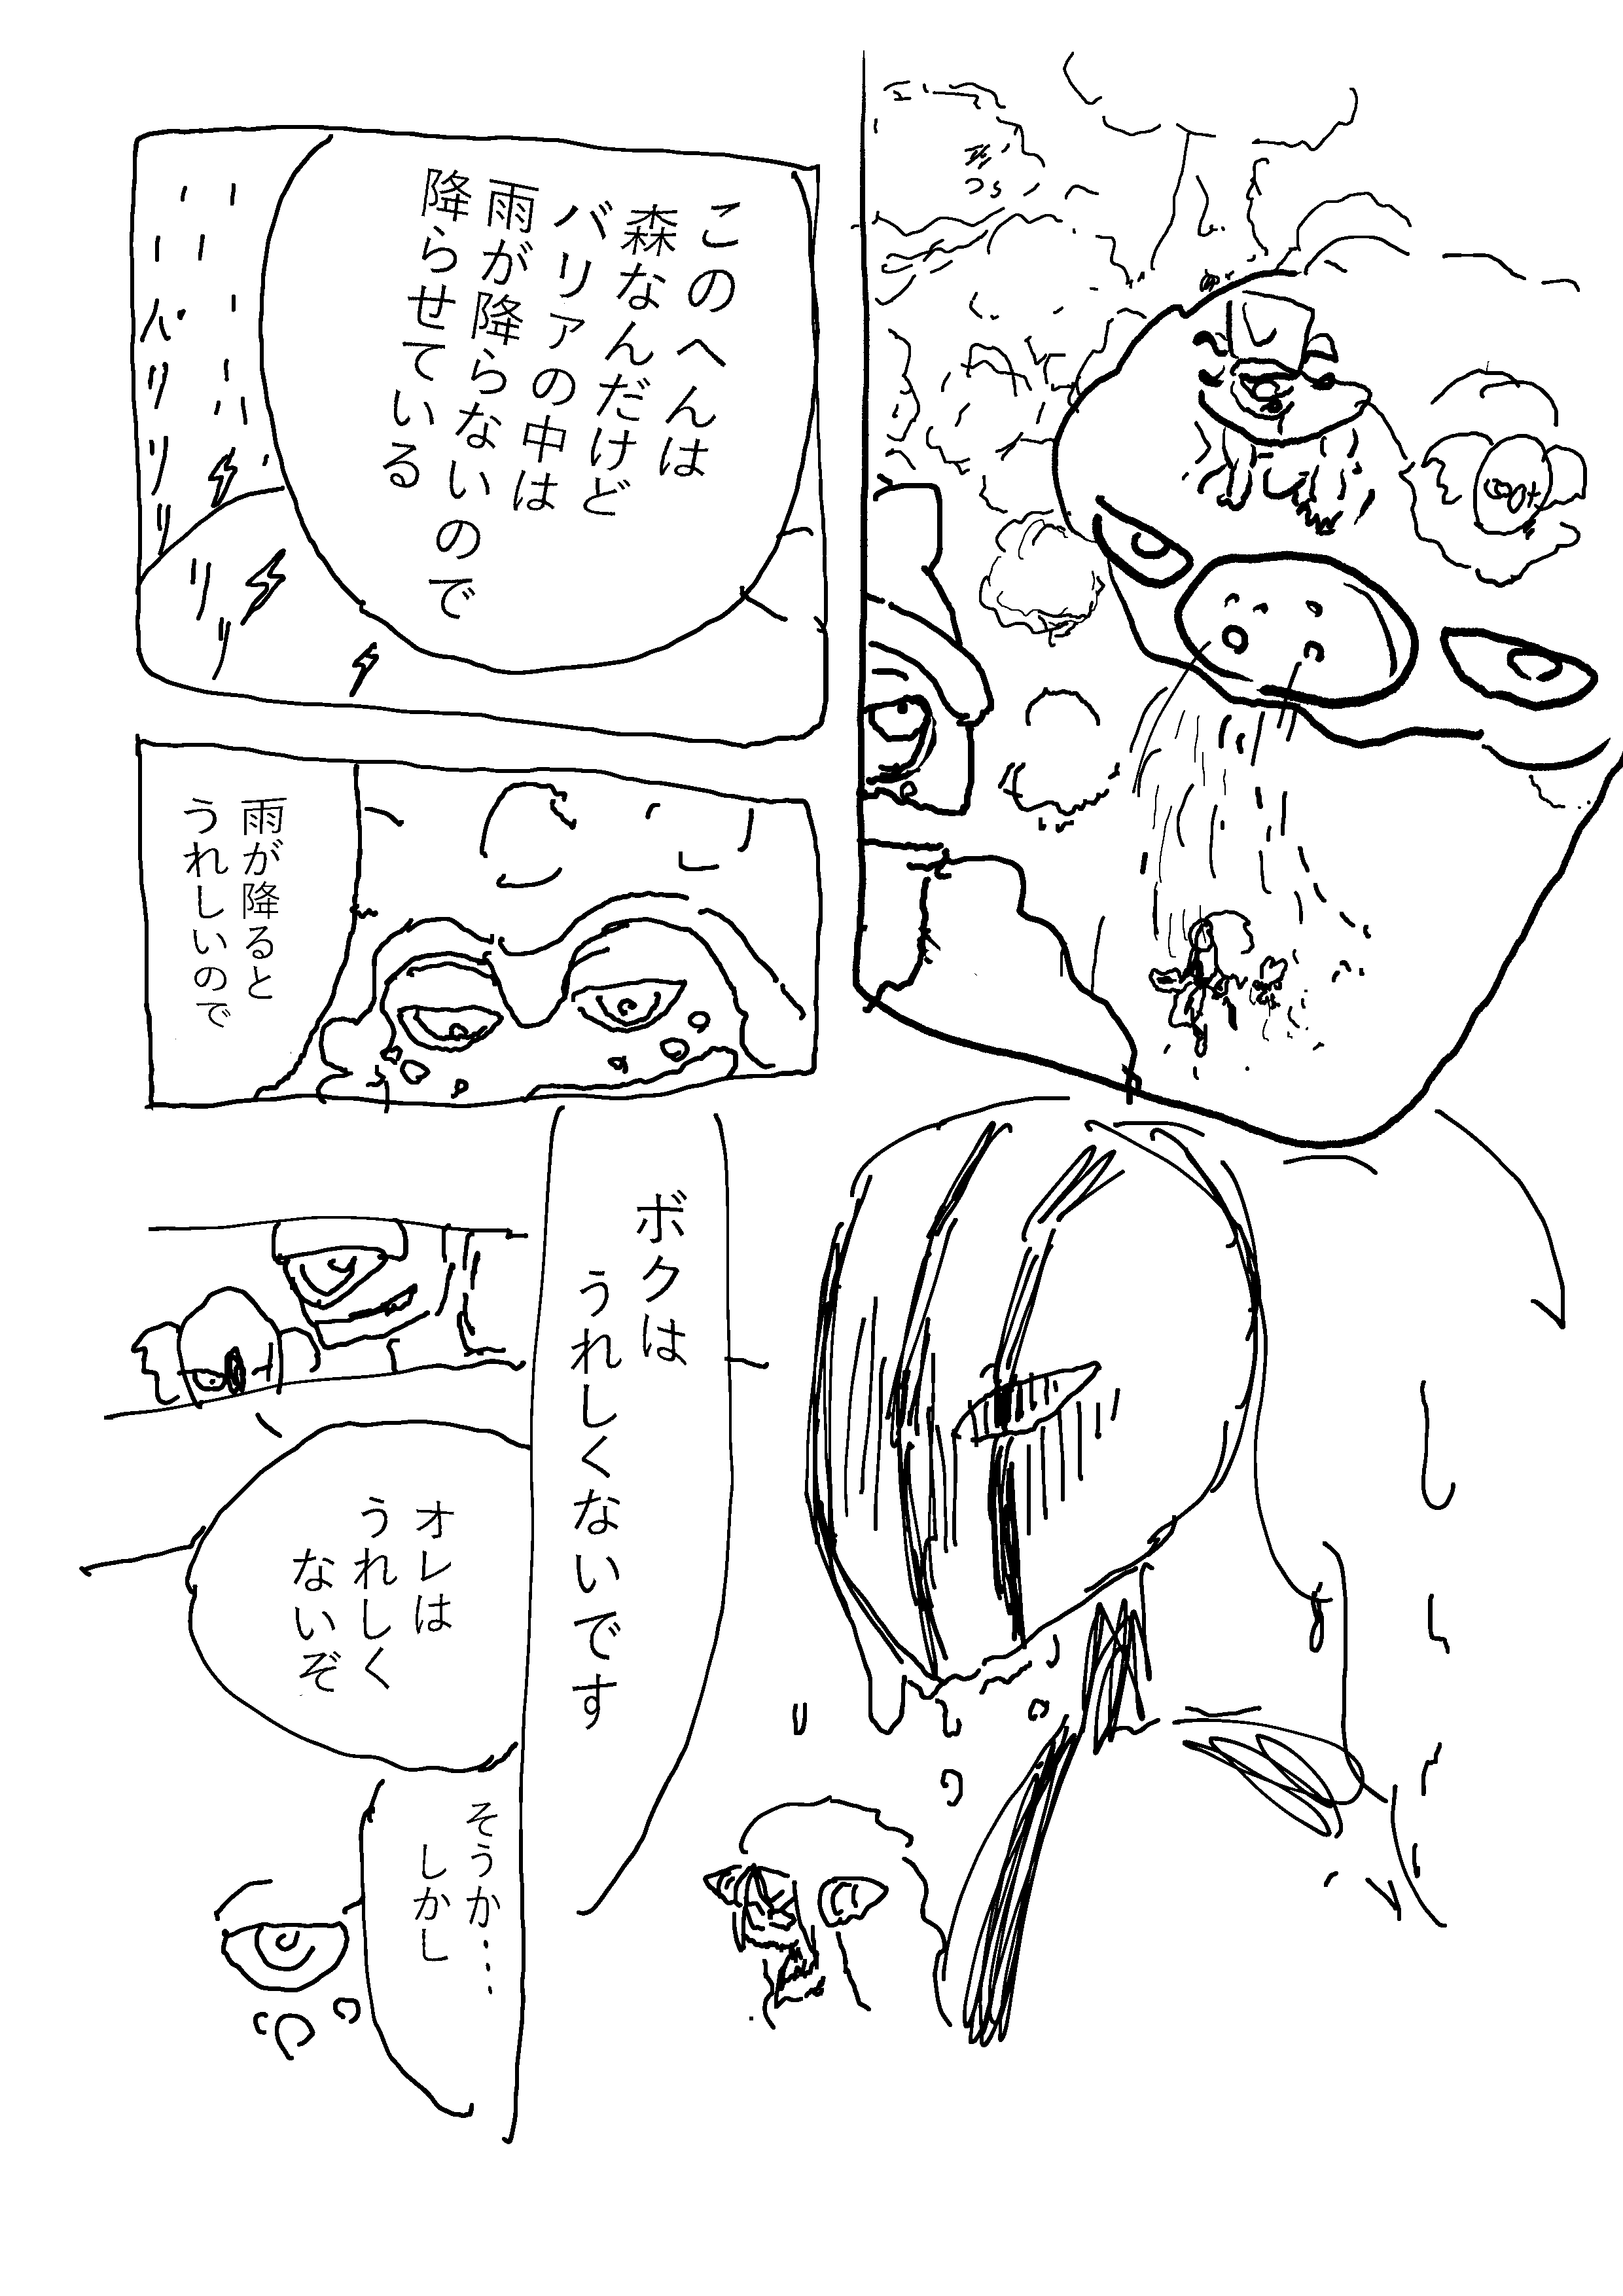 このへんは
森なんだけど
バリァの中は
雨が降らないので
降らせている
雨が降ると
うれしいので
ボクは
うれしくないです
オレは
うれしく
ないぞ
そうか・・・
しかし